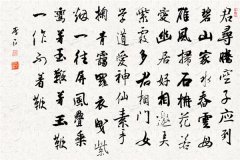 君尋騰空子應到
碧山家水舂雲母
碓風掃石楠花若
愛幽居好相邀弄
紫霞多君相門女
學道愛神仙素手
掬青靄羅衣曳紫
煙一往屏風疊乘
鸞著玉鞭著玉鞭
一作不著鞭